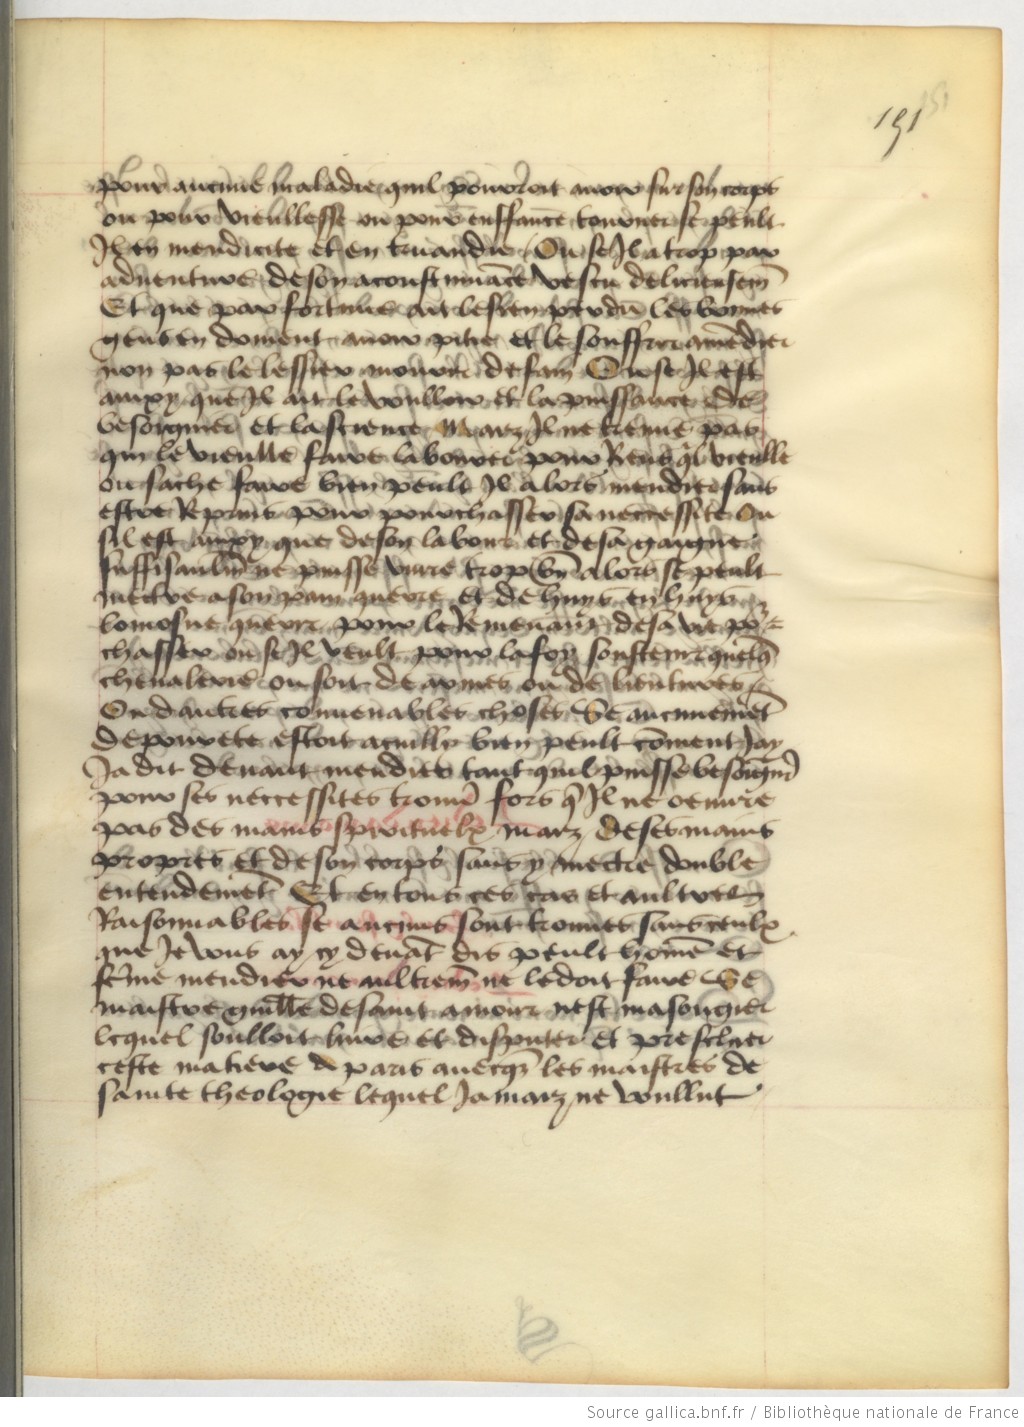 191
pour aucune maladie quil pourroit avoir sur son corps
ou pour vieullesse ou pour enffance tourner se peult
Il en mendicite et en truandie Ou se Il a trop par
adventure de son acoustumāce vescu delicieusem̄
Et que par fortune ait le sien perdu les bonnes
gens en doivent avoir pitie et le souffrir amēdier
non pas le lessier mourir de fain Ou se Il est
ainxy que Il ait le voulloir et la puissance de
besoigner et la science Marz Il ne treuve pas
qui le vieulle faire labourer pour riens q̄l vieulle
ou sache faire bien peult Il alors mendier sans
estre reprins pour pourchasser sa necessite Ou
sil est ainxy que de son labour et de sa gaigne
suffisaulm̄ ne puisse vivre trop bn̄ alors se peult
mectre a son pain querre et de huys en huys
lomosne querre pour le remenant de sa vie po᷑
chasser ou se Il veult pour la foy soustenir quelq̄
chevalerie ou soit de armes ou de lieutures
Ou dautres convenables choses Se aucunemēt
de povrete estoit acuilly bien peult cōment Jay
Ja dit devant mendier tant quil puisse besoigni᷑
pour ses neccessites trouv᷑ fors q̄ Il ne oeuvre
pas des mains spirituelx marz de ses mains
propres et de son corps sans y mectre double
entendemēt Et en tous ces cas et aultres
Raisonnables se aucuns sont trouves sans ceulx
que Je vous ay cy devāt dis peult home et
fēme mendier ne aultrem̄ ne le doit faire Se
maistre guille de saint amour nest masongier
lequel soulloit lire et disputer et preschier
ceste matiere a paris avecq̄ les maistres de
sainte theologie lequel Jamarz ne voullut
Source gallica.bnf.fr / Bibliothèque nationale de France